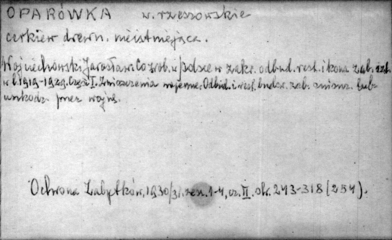 OPARÓWKA w. rzeszowskie
cerkiew drewn. nieistniejąca.
Wojciechowski Jarosław: Co zrob. w Polsce w zakr. odbud. rest. i kons. zab. szt.
w l. 1919-1929. Część I. Zniszczenia wojenne. Odbud. i rest. budow. zab. zniszcz. lub
uszkodz. przez wojnę.
Ochrona Zabytków, 1930/31. zesz. 1-4, cz. II. str. 243-318 (254).